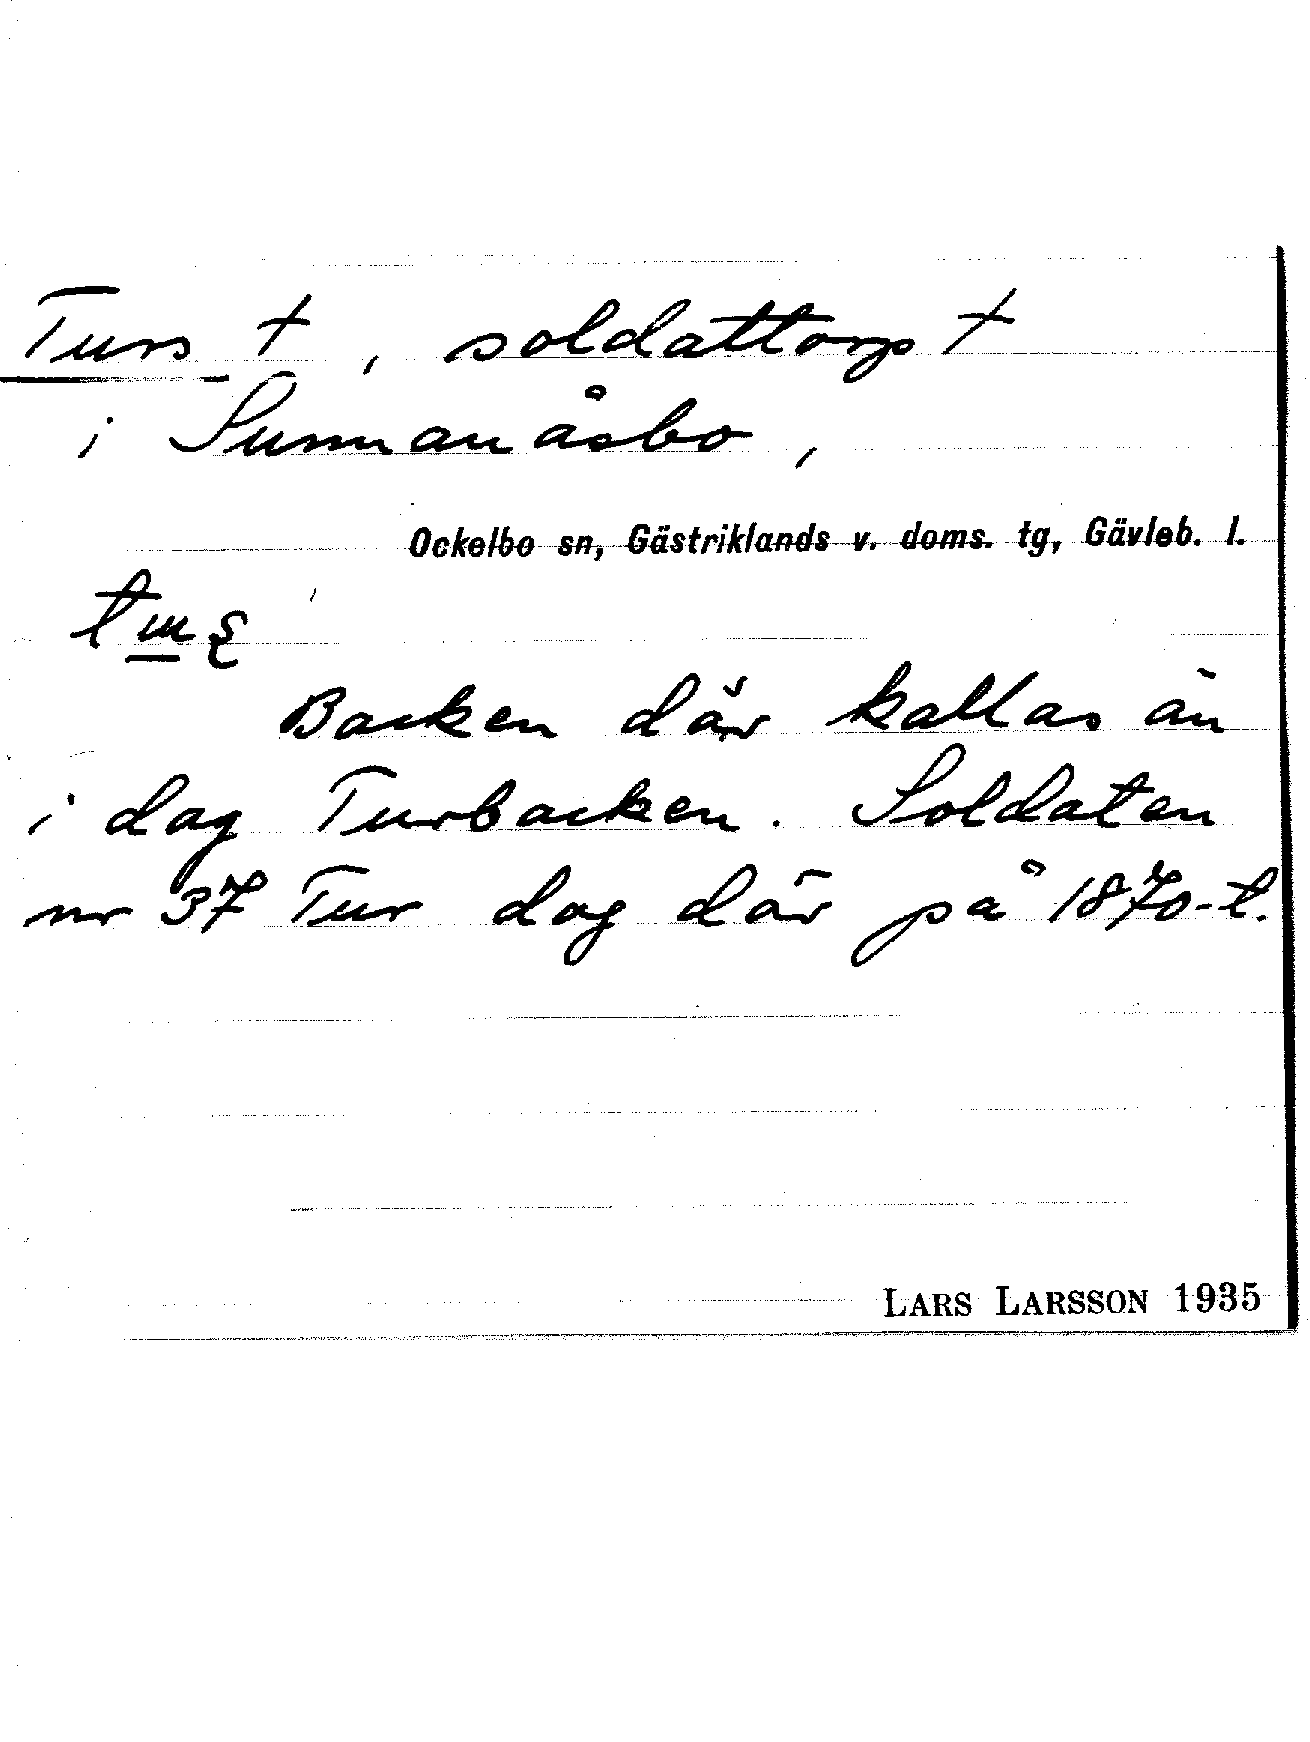 Turs †, soldattorp †
i Sunnanåsbo,
Ockelbo sn, Gästriklands v. doms. tg, Gävleb. l.
Backen där kallas än
i dag Turbacken. Soldaten
nr 37 Tur dog där på 1870-t.
LARS LARSSON 1935